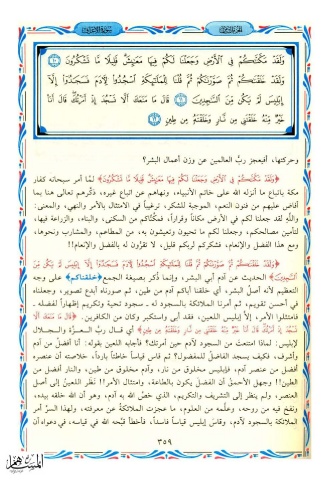 وَلَقَدْ مَكَّنَّاكُمْ فِي الْأَرْضِ وَجَعَلْنَا لَكُمْ فِيهَا مَعَايِشَ قَلِيلًا مَّا تَشْكُرُونَ ١٠
وَلَقَدْ خَلَقْنَاكُمْ ثُمَّ صَوَّرْنَاكُمْ ثُمَّ قُلْنَا لِلْمَلَائِكَةِ اسْجُدُوا لِآدَمَ فَسَجَدُوا إِلَّا
إِبْلِيسَ لَمْ يَكُن مِّنَ السَّاجِدِينَ ١١ قَالَ مَا مَنَعَكَ أَلَّا تَسْجُدَ إِذْ أَمَرْتُكَ قَالَ أَنَا
خَيْرٌ مِّنْهُ خَلَقْتَنِي مِن نَّارٍ وَخَلَقْتَهُ مِن طِينٍ ١٢
وحركتها، أفيعجز ربُّ العالمين عن وزن أعمال البشر؟
﴿وَلَقَدْ مَكَّنَّاكُمْ فِي الْأَرْضِ وَجَعَلْنَا لَكُمْ فِيهَا مَعَايِشَ قَلِيلًا مَّا تَشْكُرُونَ﴾ لمّا أمر سبحانه كفار
مكة باتباع ما أنزله الله على خاتم الأنبياء، ونهاهم عن اتباع غيره، ذكّرهم تعالى هنا بما
أفاض عليهم من فنون النعم، الموجبة للشكر، ترغيباً في الامتثال بالأمر والنهي، والمعنى:
والله لقد جعلنا لكم في الأرض مكاناً وقراراً، فمكّناكم من السكنى، والبناء، والزراعة فيها،
لتأمين مصالحكم، وجعلنا لكم ما تحيون وتعيشون به، من المطاعم، والمشارب ونحوها،
ومع هذا الفضل والإنعام، فشكركم لربكم قليل، لا تقرون له بالفضل والإنعام!!
﴿وَلَقَدْ خَلَقْنَاكُمْ ثُمَّ صَوَّرْنَاكُمْ ثُمَّ قُلْنَا لِلْمَلَائِكَةِ اسْجُدُوا لِآدَمَ فَسَجَدُوا إِلَّا إِبْلِيسَ لَمْ يَكُن مِّنَ
السَّاجِدِينَ﴾ الحديث عن آدم أبي البشر، وإنما ذكر بصيغة الجمع ﴿خلقناكم﴾ على وجه
التعظيم لأنه أصل البشر، أي خلقنا أباكم آدم من طين، ثم صورناه أبدع تصوير، وجعلناه
في أحسن تقويم، ثم أمرنا الملائكة بالسجود له ـ سجود تحية وتكريم إظهاراً لفضله ـ
فامتثلوا الأمر، إلاّ إبليس اللعين، فقد أبى واستكبر وكان من الكافرين. ﴿قَالَ مَا مَنَعَكَ أَلَّا
تَسْجُدَ إِذْ أَمَرْتُكَ قَالَ أَنَا خَيْرٌ مِّنْهُ خَلَقْتَنِي مِن نَّارٍ وَخَلَقْتَهُ مِن طِينٍ﴾ أي قال ربُّ العزَّة والجلال
لإبليس: لماذا امتنعت من السجود لآدم حين أمرتك؟ فأجابه اللعين بقوله: أنا أفضل من آدم
وأشرف، فكيف يسجد الفاضل للمفضول؟ ثم قاس قياساً خاطئاً بارداً، خلاصته أن عنصره
أفضل من عنصر آدم، فإبليس مخلوق من نار، وآدم مخلوق من طين، والنار أفضل من
الطين!! وجهل الأحمق أن الفضل يكون بالطاعة، وامتثال الأمر!! نظر اللعين إلى أصل
العنصر، ولم ينظر إلى التشريف والتكريم، الذي خصّ الله به آدم، وهو أن الله خلقه بيده،
ونفخ فيه من روحه، وعلّمه من العلوم، ما عجزت الملائكة عن معرفته، ولهذا السرّ أمر
الملائكة بالسجود لآدم، وقاس إبليس قياساً فاسداً، فأخطأ قبّحه الله في قياسه، في دعواه أن
٣٥٩